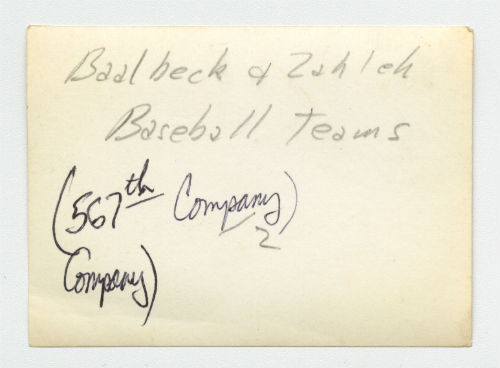 Baalbeck & Zahleh
Baseball Teams
(567th Company)
2
Company)